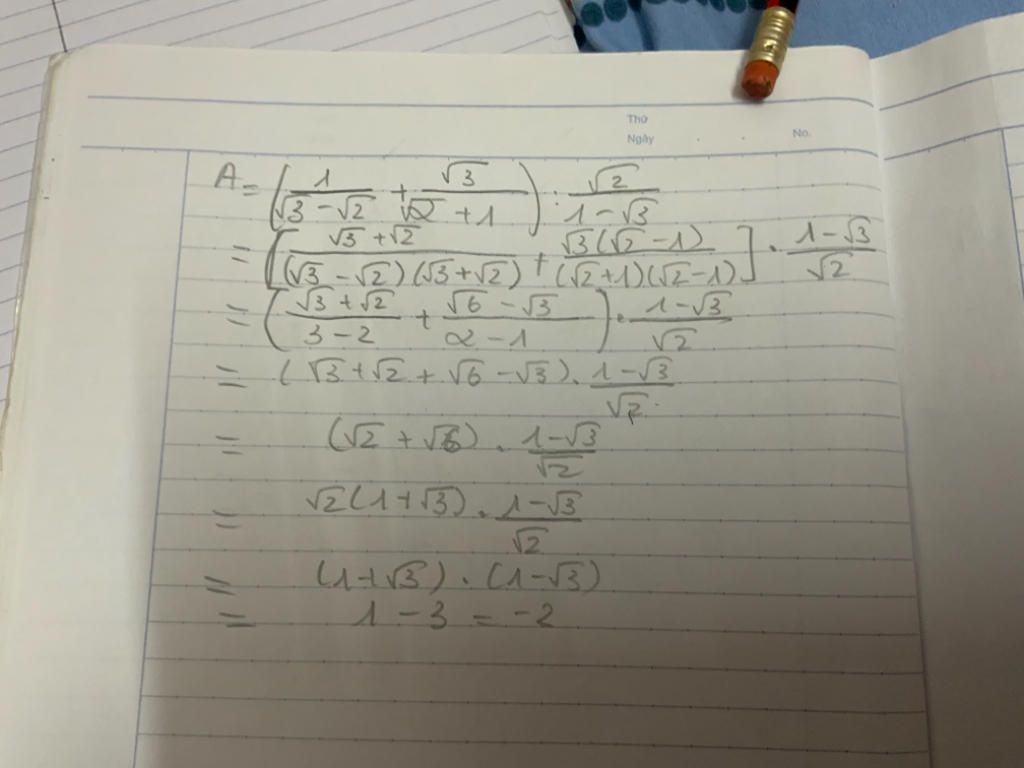 Thứ
Ngày No.
A = (1/(√3 - √2) + √3/(√2 + 1)) : √2/(1 - √3)
= [(√3 + √2)/((√3 - √2)(√3 + √2)) + √3(√2 - 1)/((√2 + 1)(√2 - 1))] . (1 - √3)/√2
= ((√3 + √2)/(3 - 2) + (√6 - √3)/(2 - 1)) . (1 - √3)/√2
= (√3 + √2 + √6 - √3) . (1 - √3)/√2
= (√2 + √6) . (1 - √3)/√2
= √2(1 + √3) . (1 - √3)/√2
= (1 + √3) . (1 - √3)
= 1 - 3 = -2